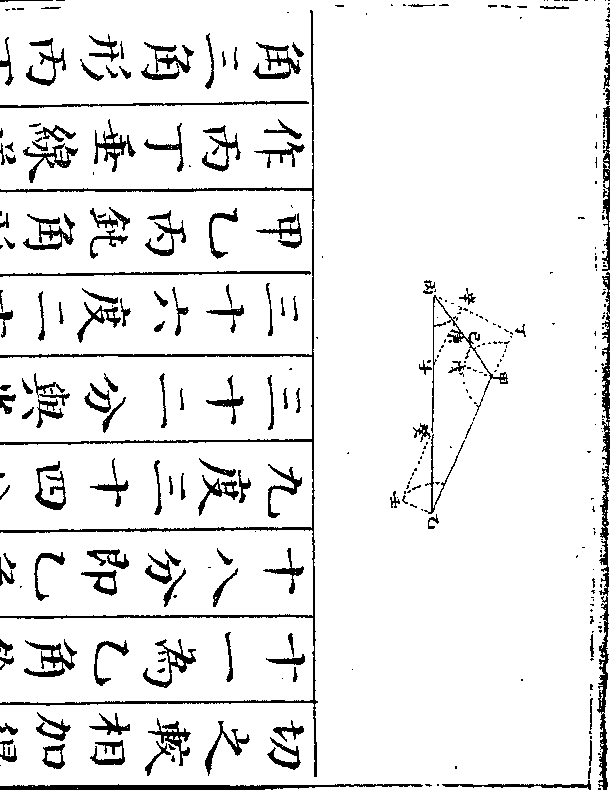 切之較相加得
十一為乙角
十八分即乙角
九度三十四
三十二分與
三十六度二十
甲乙丙鈍角形
作丙丁垂線
角三角形丙丁
乙
壬
癸
甲
子
戊
己
庚
丁
辛
丙